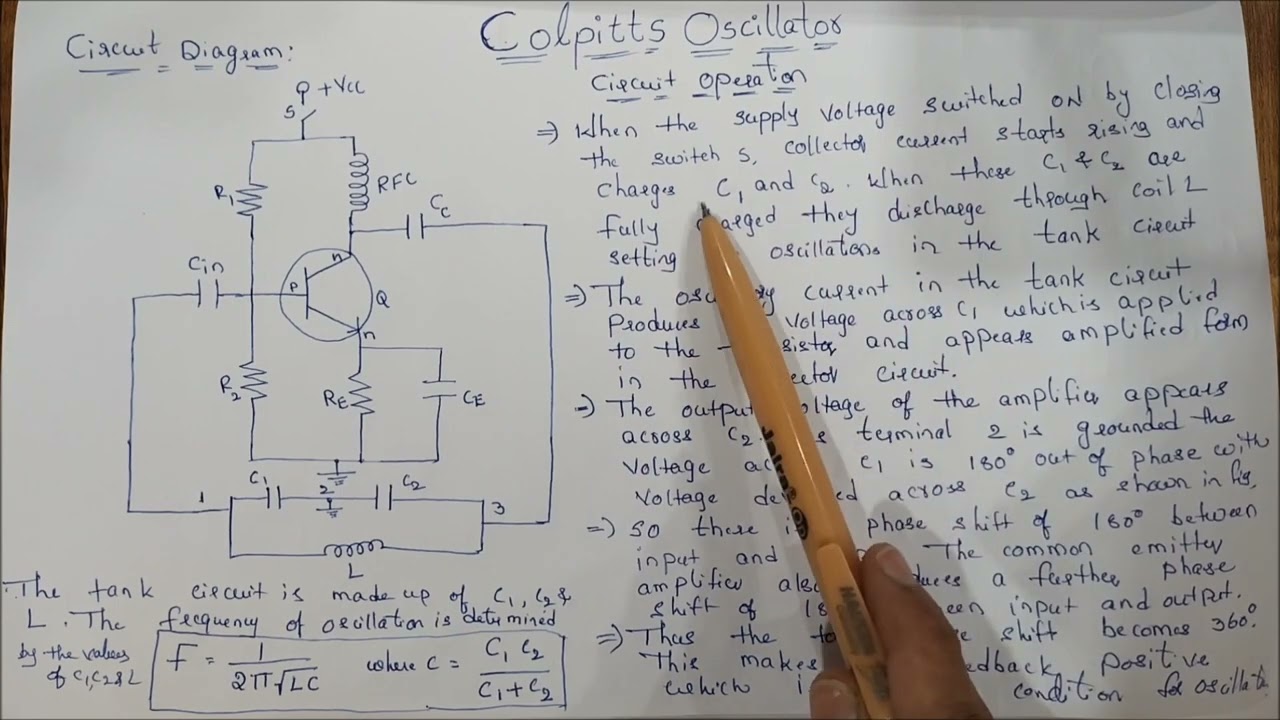 Colpitts Oscillator
Circuit Diagram:
+Vcc
S
R1
RFC
Cc
Cin
P
n
Q
n
R2
RE
CE
C1
2
C2
1
3
L
The tank circuit is made up of C1, C2 &
L. The frequency of oscillation is determined
by the values
of C1, C2 & L
F = 1 / 2π√LC where C = C1 C2 / C1 + C2
Circuit Operation
⇒ When the supply voltage switched ON by closing
the switch S, collector current starts rising and
charges C1 and C2. When these C1 & C2 are
fully they discharge through coil L
setting oscillations in the tank circuit
⇒ The current in the tank circuit
Produces voltage across C1 which is applied
to the and appears amplified form
in the circuit.
⇒ The output of the amplifier appears
across C2. terminal 2 is grounded the
voltage C1 is 180° out of phase with
voltage across C2 as shown in fig.
⇒ SO there phase shift of 180° between
input and The common emitter
amplifier a further phase
shift of input and output.
⇒ Thus the shift becomes 360°.
This makes positive
which condition for
Jelra